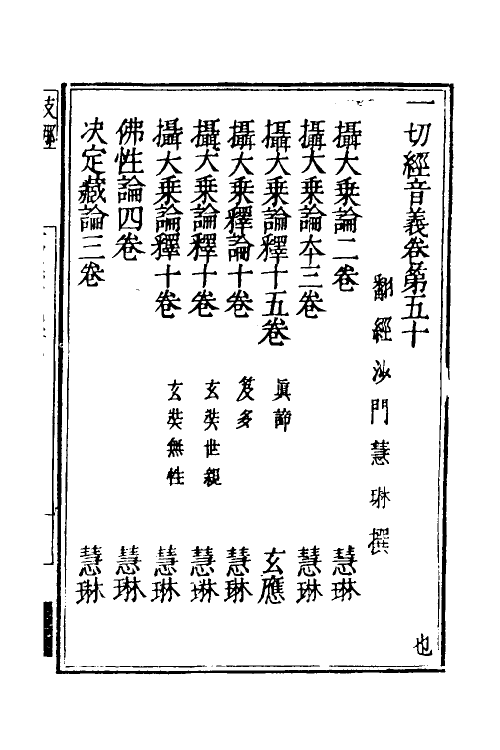 一切經音義卷第五十
翻經沙門慧琳撰
攝大乗論二卷 慧琳
攝大乗論本三卷 慧琳
攝大乗論釋十五卷 真諦 玄應
攝大乗釋論十卷 笈多 慧琳
攝大乗論釋十卷 玄奘世親 慧琳
攝大乗論釋十卷 玄奘無性 慧琳
佛性論四卷 慧琳
决定藏論三卷 慧琳
也